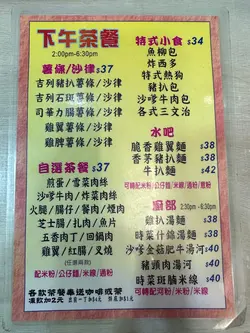 下午茶餐
2:00pm-6:30pm
薯條/沙律 $37
吉列豬扒薯條/沙律
吉列石斑薯條/沙律
司華力腸薯條/沙律
雞翼薯條/沙律
雞脾薯條/沙律
自選茶餐 $37
煎蛋/雪菜肉絲
沙嗲牛肉/炸菜肉絲
火腿/腸仔/餐肉/煙肉
芝士腸/扎肉/魚片
五香肉丁/回鍋肉
雞翼/紅腸/叉燒
(任選兩款)
配米粉/公仔麵/米線/通粉
特式小食 $34
魚柳包
炸西多
特式熱狗
豬扒包
沙嗲牛肉包
各式三文治
水吧
脆香雞翼麵 $38
香茅豬扒麵 $38
牛扒麵 $42
可轉配米粉/公仔麵/米線/通粉/意粉
廚部 2:30pm-6:30pm
雞扒湯麵 $38
時菜什錦湯麵 $38
沙嗲金菇肥牛湯河 $38
豬頸肉湯河 $38
時菜斑腩米線 $38
可轉配河粉/米粉/米線
各款茶餐奉送咖啡或茶
凍飲加2元